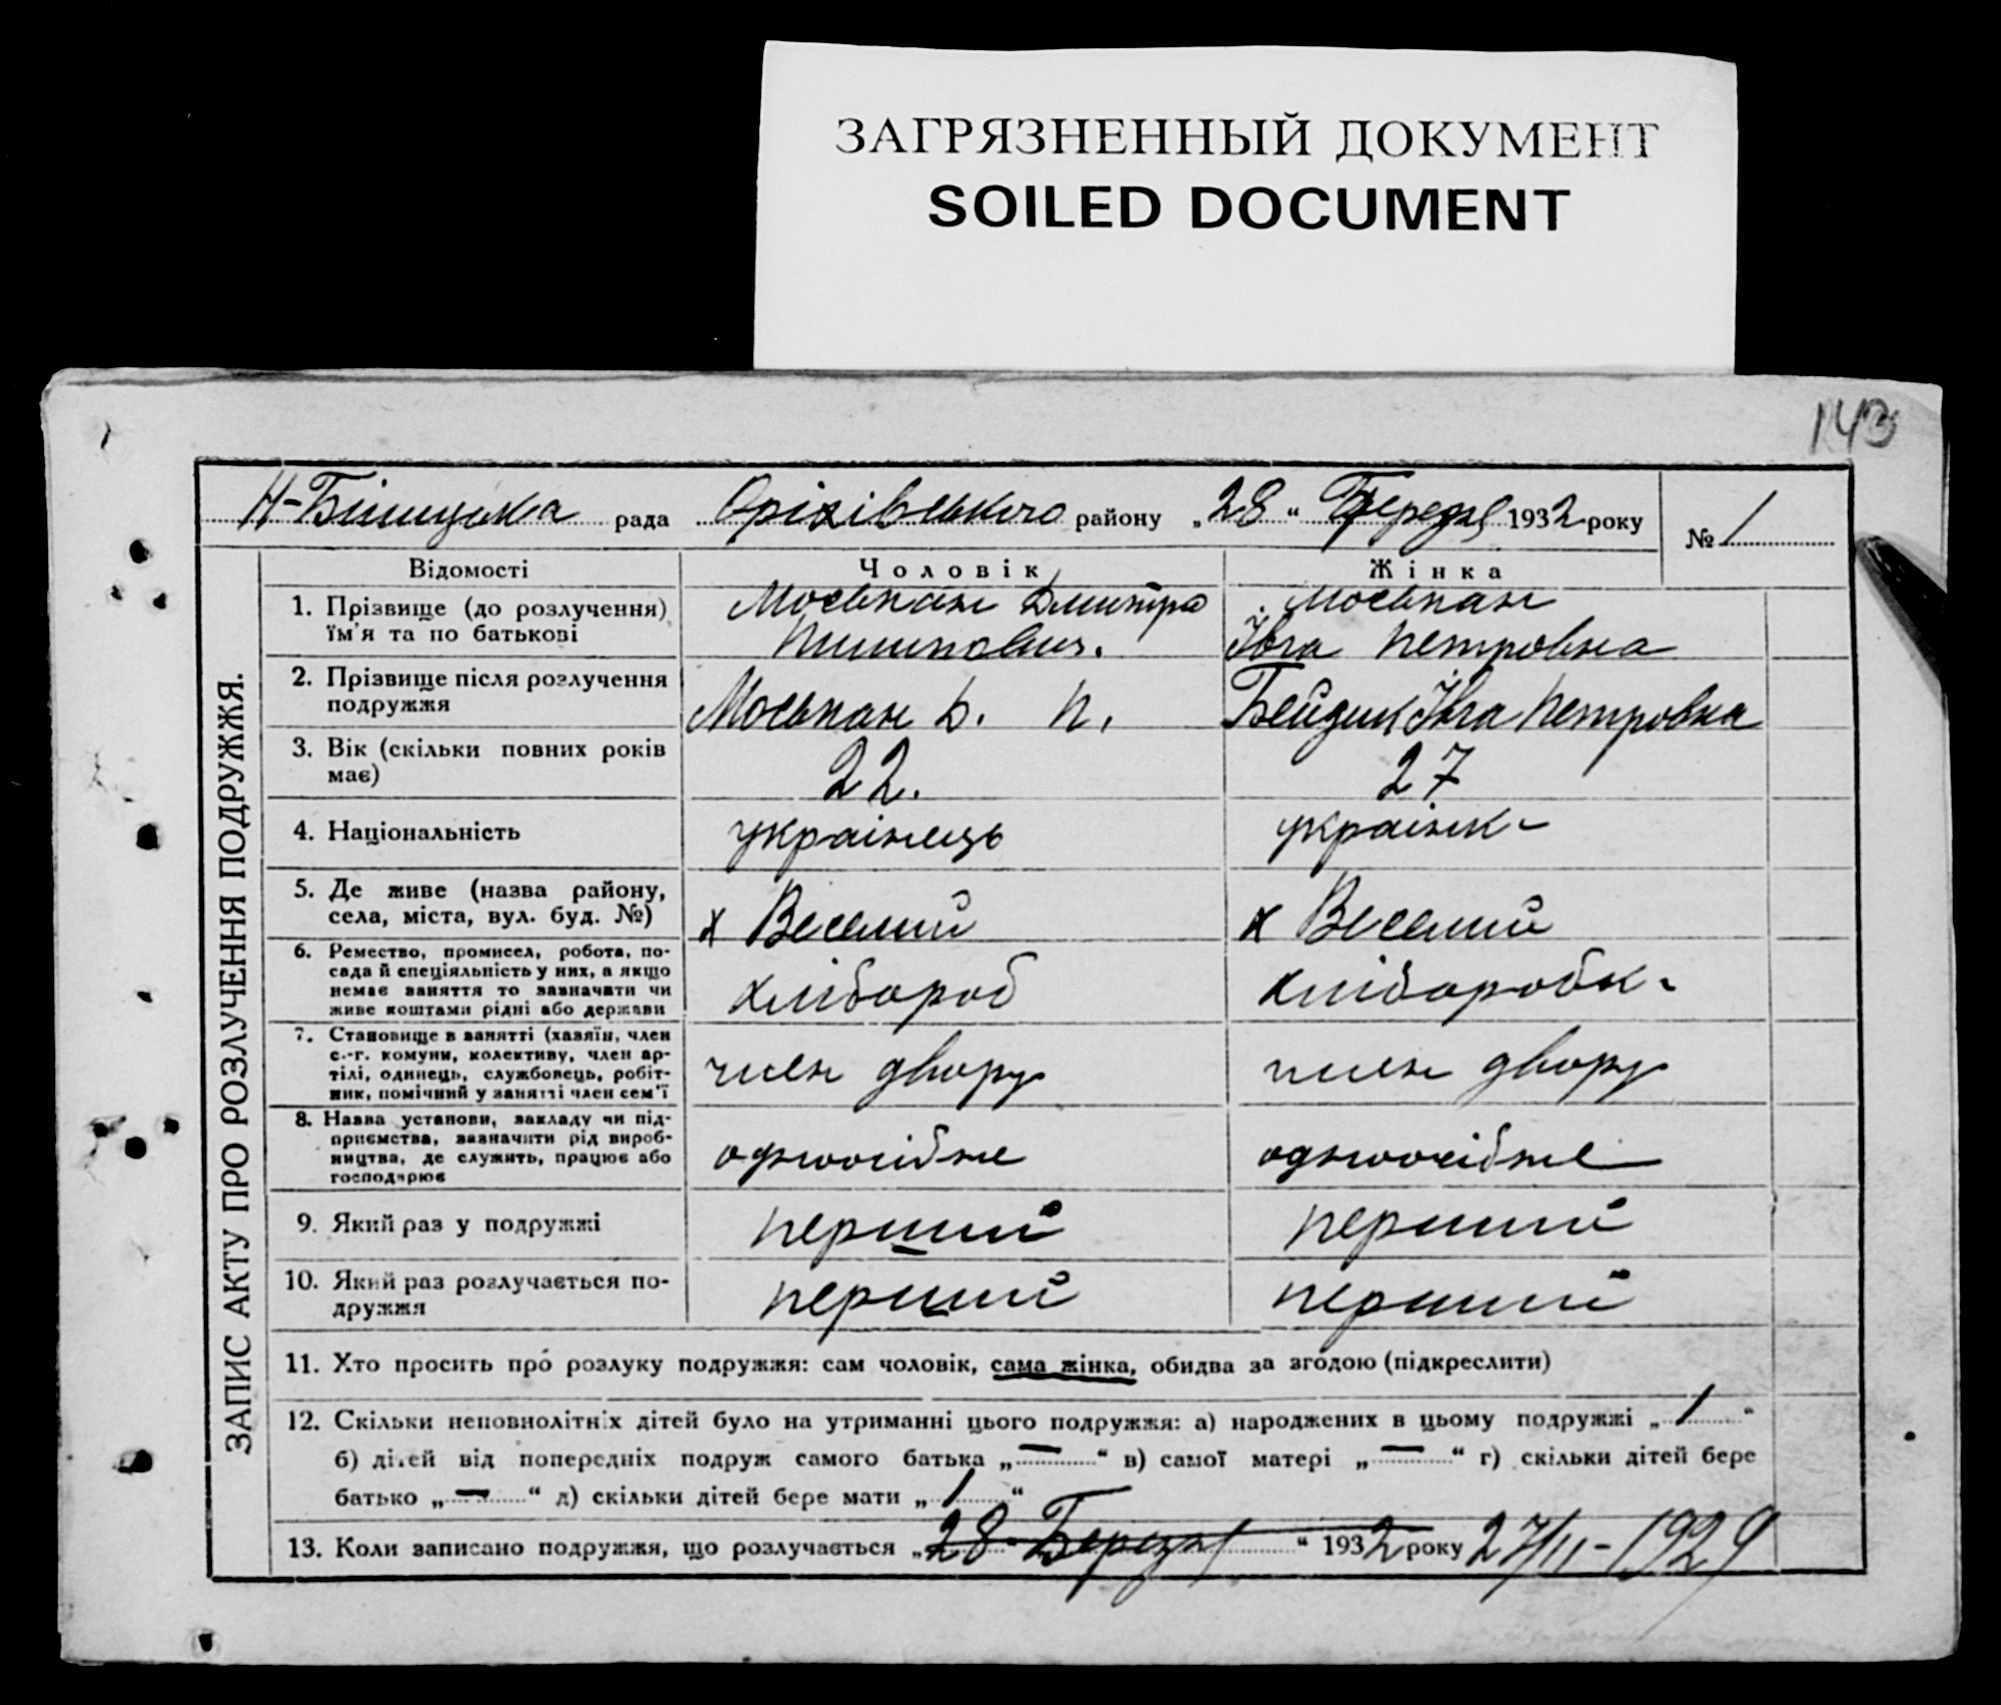 ЗАГРЯЗНЕННЫЙ ДОКУМЕНТ
SOILED DOCUMENT
143
рада Оріхівського району „28“ Березня 1932 року № 1
ЗАПИС АКТУ ПРО РОЗЛУЧЕННЯ ПОДРУЖЖЯ.
Відомості Чоловік Жінка
1. Прізвище (до розлучення) Мосьпан Дмитро Мосьпан
їм'я та по батькові Пилипович. Івга Петровна
2. Прізвище після розлучення
подружжя Мосьпан Д. П. Бейдик Івга Петровна
3. Вік (скільки повних років
має) 22. 27
4. Національність українець українк-
5. Де живе (назва району,
села, міста, вул. буд. №) х Веселий х Веселий
6. Ремество, промисел, робота, по-
сада й спеціяльність у них, а якщо
немає заняття то зазначати чи хлібороб хлібороБк-
живе коштами рідні або держави
7. Становище в занятті (хазяїн, член
с.-г. комуни, колективу, член ар-
тілі, одинець, службовець, робіт- член двору член двору
ник, помічний у занятті член сем'ї
8. Назва установи, закладу чи під-
приємства, зазначити рід вироб-
ництва, де служить, працює або одноосібне одноосібне
господарює
9. Який раз у подружжі перший перший
10. Який раз розлучається по-
дружжя перший перший
11. Хто просить про розлуку подружжя: сам чоловік, сама жінка, обидва за згодою (підкреслити)
12. Скільки неповнолітніх дітей було на утриманні цього подружжя: а) народжених в цьому подружжі „1“
б) дітей від попередніх подруж самого батька „—“ в) самої матері „—“ г) скільки дітей бере
батько „—“ д) скільки дітей бере мати „1“
13. Коли записано подружжя, що розлучається „28 Березня“ 1932 року 27/II-1929